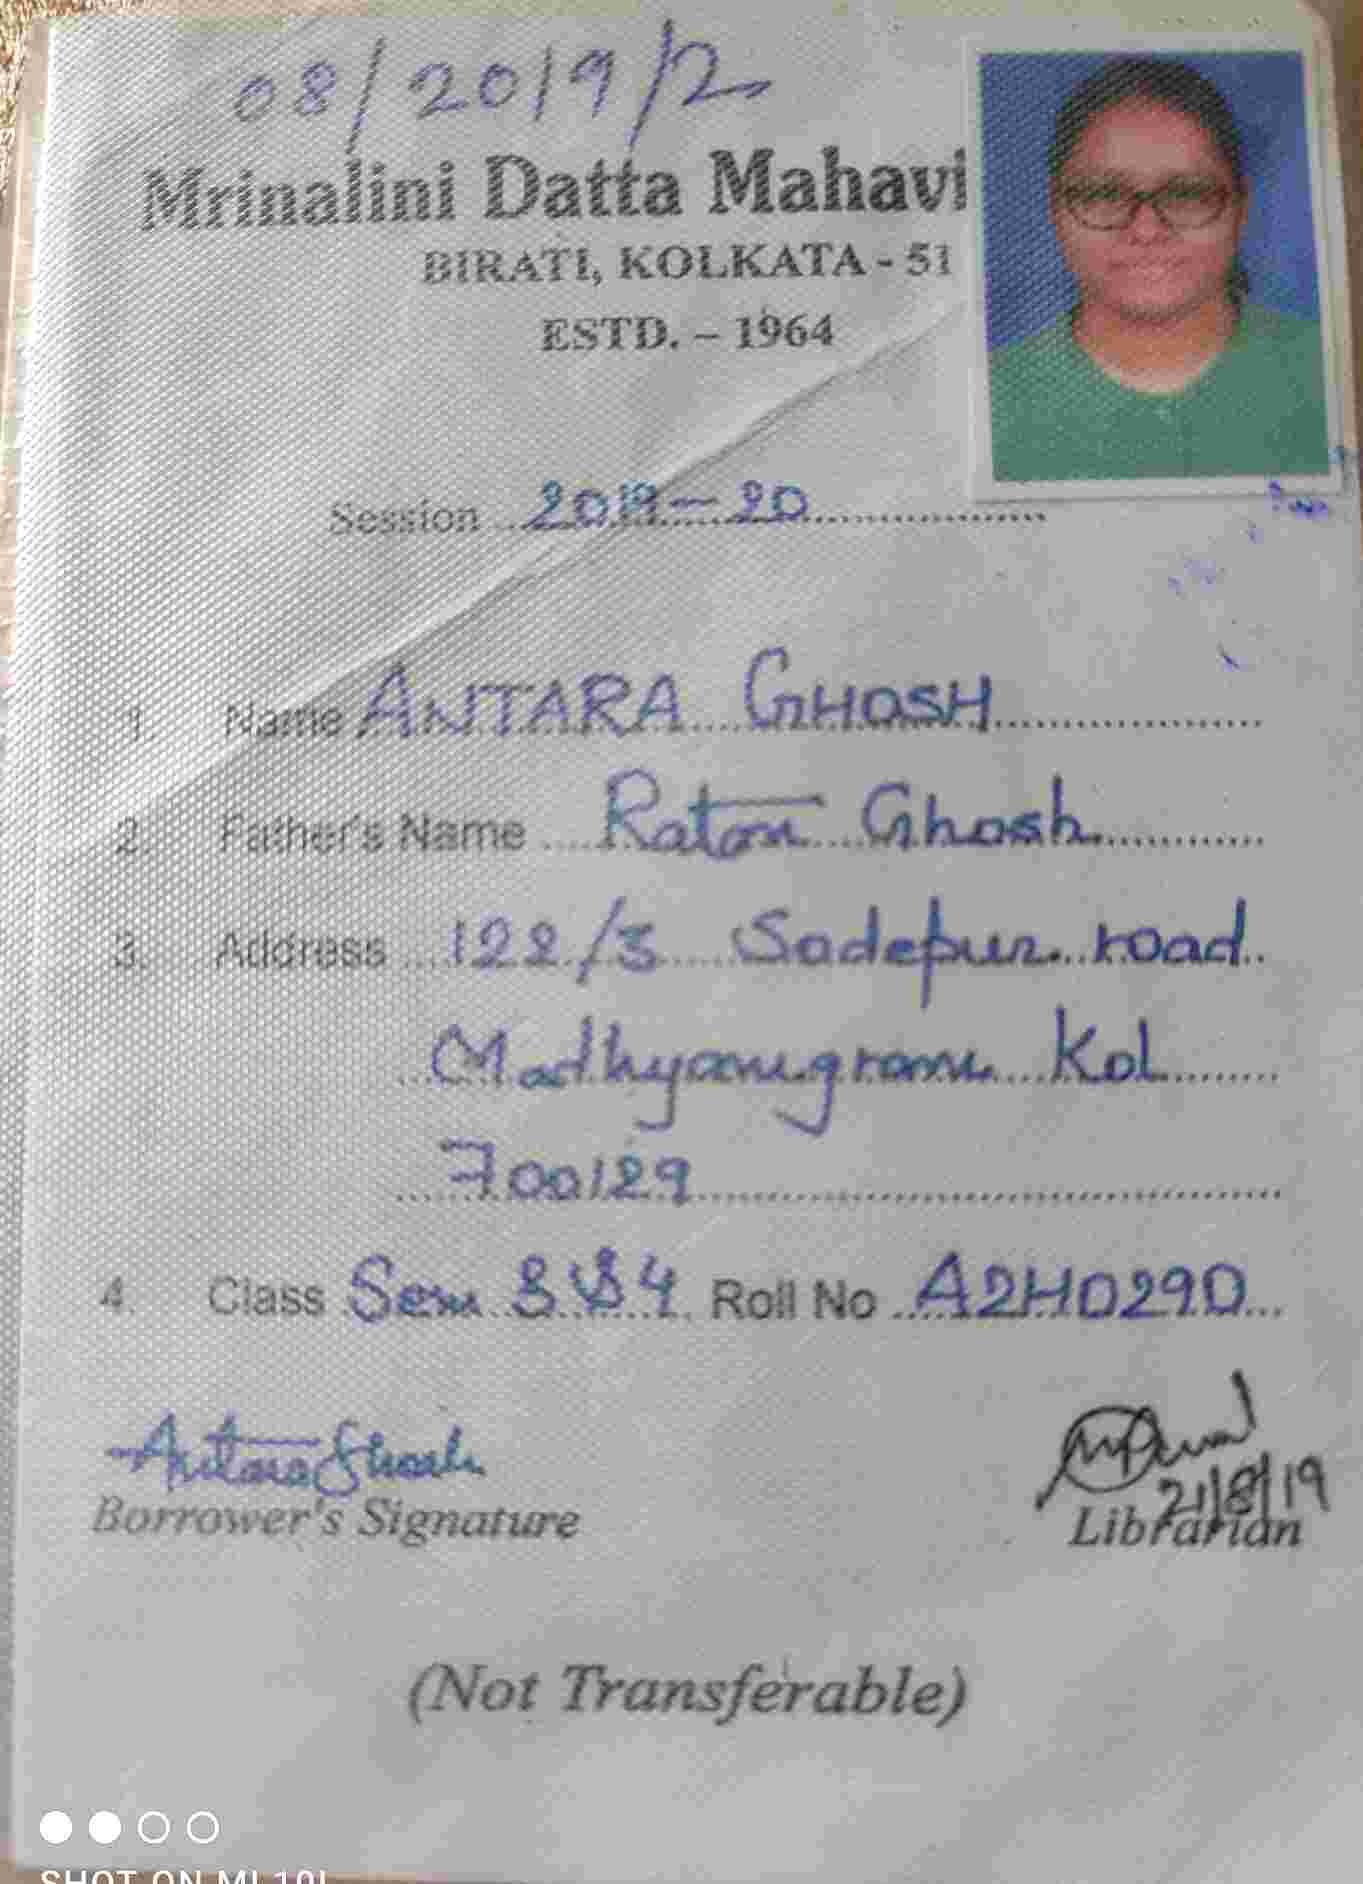 08/2019/2
Mrinalini Datta Mahavi
BIRATI, KOLKATA - 51
ESTD. – 1964
Session 2019-20
1. Name ANTARA GHOSH
2. Father's Name Ratan Ghosh
3. Address 122/3 Sodepur road
Madhyamgram Kol
700129
4. Class Sem 3 & 4 Roll No A2H0290
Antara Ghosh
21/8/19
Borrower's Signature Librarian
(Not Transferable)
SHOT ON MI 10I